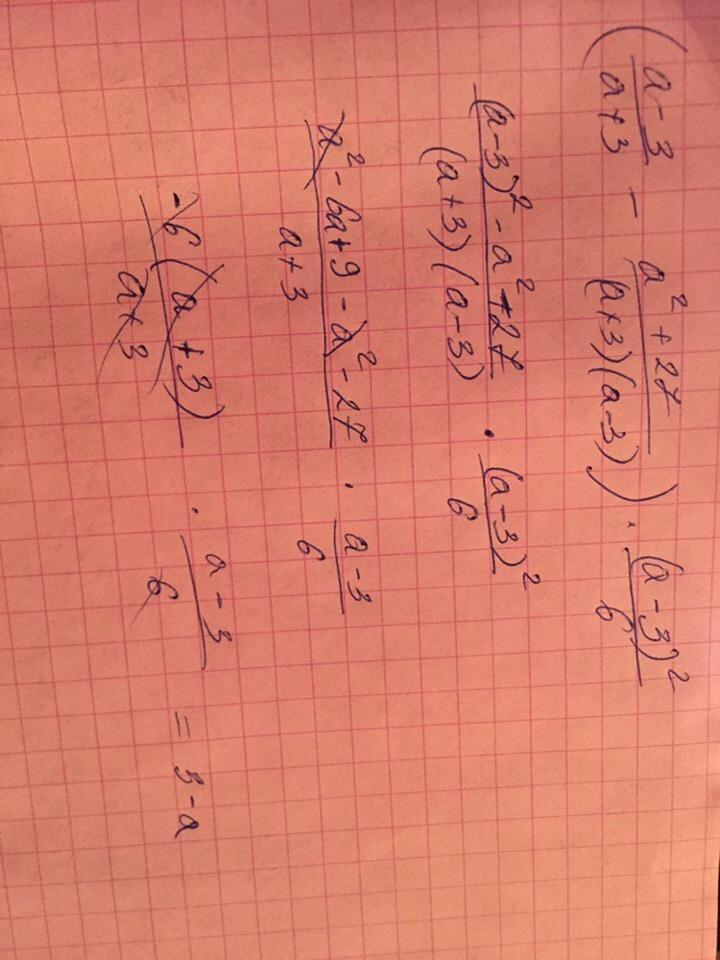 (a-3/a+3 - a²+27/(a+3)(a-3)) · (a-3)²/6
(a-3)²-a²+27/(a+3)(a-3) · (a-3)²/6
a²-6a+9-a²-27/a+3 · a-3/6
-6(a+3)/a+3 · a-3/6 = 3-a